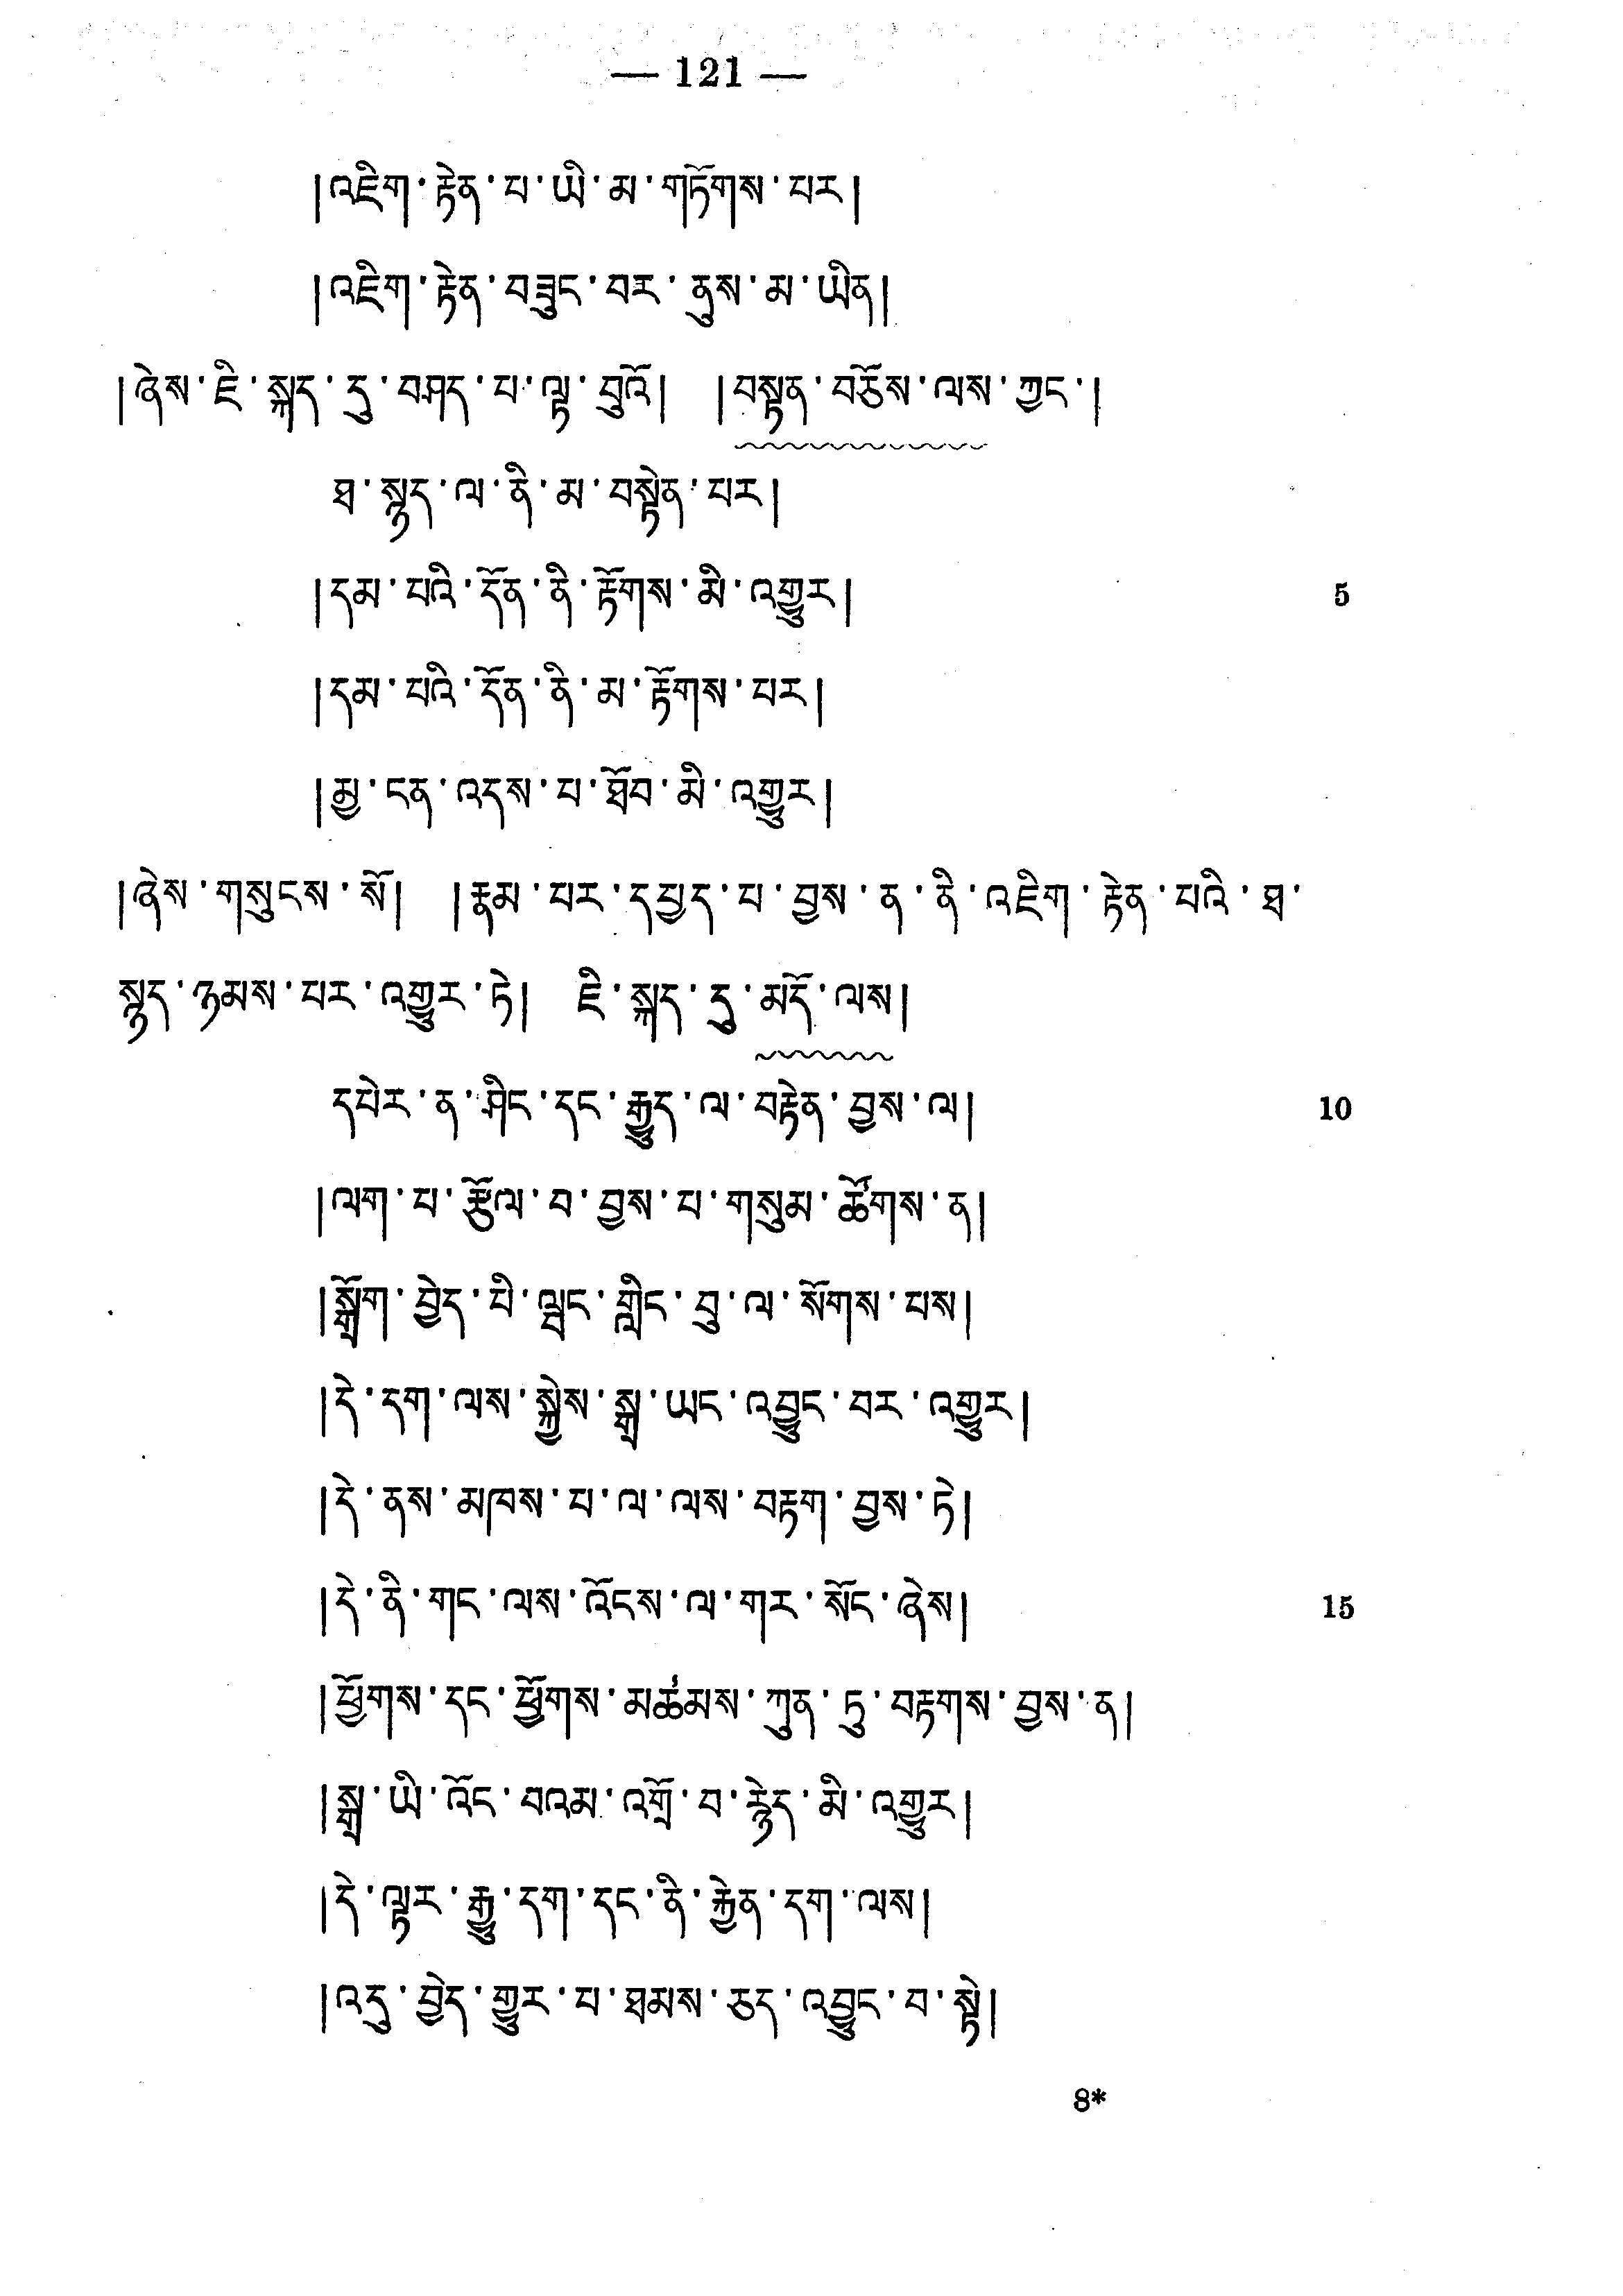 — 121 —
།འཇིག་རྟེན་པ་ཡི་མ་གཏོགས་པར།
།འཇིག་རྟེན་བཟླུང་བར་ནུས་མ་ཡིན།
།ཞེས་ཇི་སྐད་དུ་བཤད་པ་ལྟ་བུའོ། །བསྟན་བཅོས་ལས་ཀྱང་།
ཐ་སྙད་ལ་ནི་མ་བསྟེན་པར།
།དམ་པའི་དོན་ནི་རྟོགས་མི་འགྱུར། 5
།དམ་པའི་དོན་ནི་མ་རྟོགས་པར།
།མྱ་ངན་འདས་པ་ཐོབ་མི་འགྱུར།
།ཞེས་གསུངས་སོ། །རྣམ་པར་དཔྱད་པ་བྱས་ན་ནི་འཇིག་རྟེན་པའི་ཐ་
སྙད་ཉམས་པར་འགྱུར་ཏེ། ཇི་སྐད་དུ་མདོ་ལས།
དཔེར་ན་ཤིང་དང་རྒྱུད་ལ་བརྟེན་བྱས་ལ། 10
།ལག་པ་རྩོལ་བ་བྱས་པ་གསུམ་ཚོགས་ན།
།སྒྲོག་བྱེད་པི་ལྦང་གླིང་བུ་ལ་སོགས་པས།
།དེ་དག་ལས་སྐྱེས་སྒྲ་ཡང་འབྱུང་བར་འགྱུར།
།དེ་ནས་མཁས་པ་ལ་ལས་བརྟག་བྱས་ཏེ།
།དེ་ནི་གང་ལས་འོངས་ལ་གར་སོང་ཞེས། 15
།ཕྱོགས་དང་ཕྱོགས་མཚམས་ཀུན་ཏུ་བརྟགས་བྱས་ན།
།སྒྲ་ཡི་འོང་བའམ་འགྲོ་བ་རྙེད་མི་འགྱུར།
།དེ་ལྟར་རྒྱུ་དག་དང་ནི་རྐྱེན་དག་ལས།
།འདུ་བྱེད་གྱུར་པ་ཐམས་ཅད་འབྱུང་བ་སྟེ།
8*